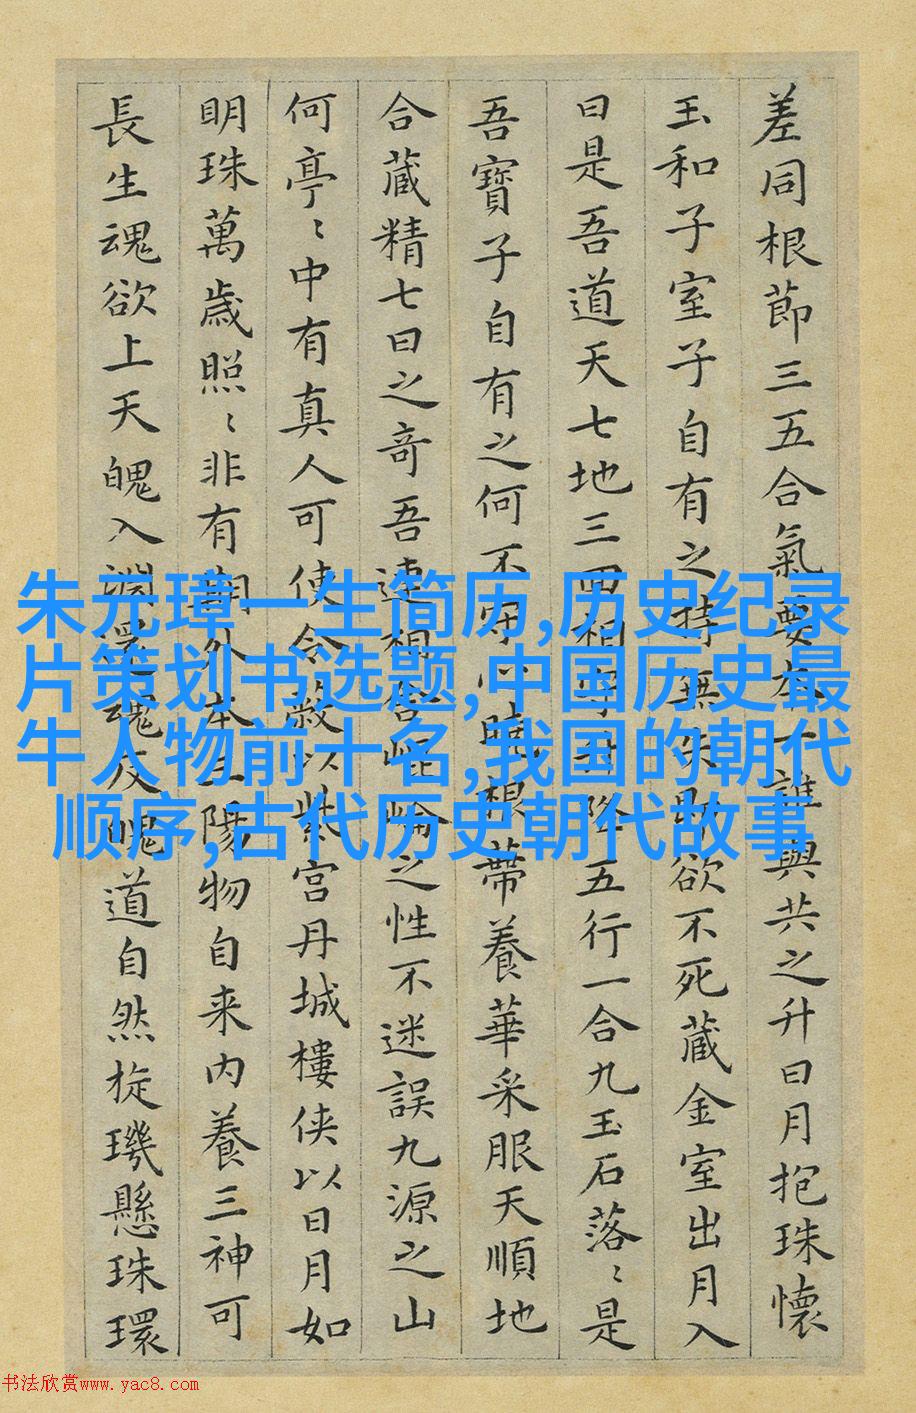 差同根節三五合氣要本一誰與共之升日月抱珠懷
玉和子室子自有之持無失即欲不死藏金室出月入
日是吾道天七地三回相守升降五行一合九玉石落〻是
吾寶子自有之何不守心曉根蔕養華采服天順地
合藏精七日之奇吾連相合崐崘之性不迷誤九源之山
何亭〻中有真人可使令蔽以紫宮丹城樓俠以日月如
明珠萬歲照〻非有期外本三陽物自来內養三神可
長生魂欲上天魄入淵還魂反魄道自然旋璣懸珠環
朱元璋一生简历,历史纪录
片策划书选题,中国历史最
牛人物前十名,我国的朝代
顺序,古代历史朝代故事
书法欣赏www.yac8.com